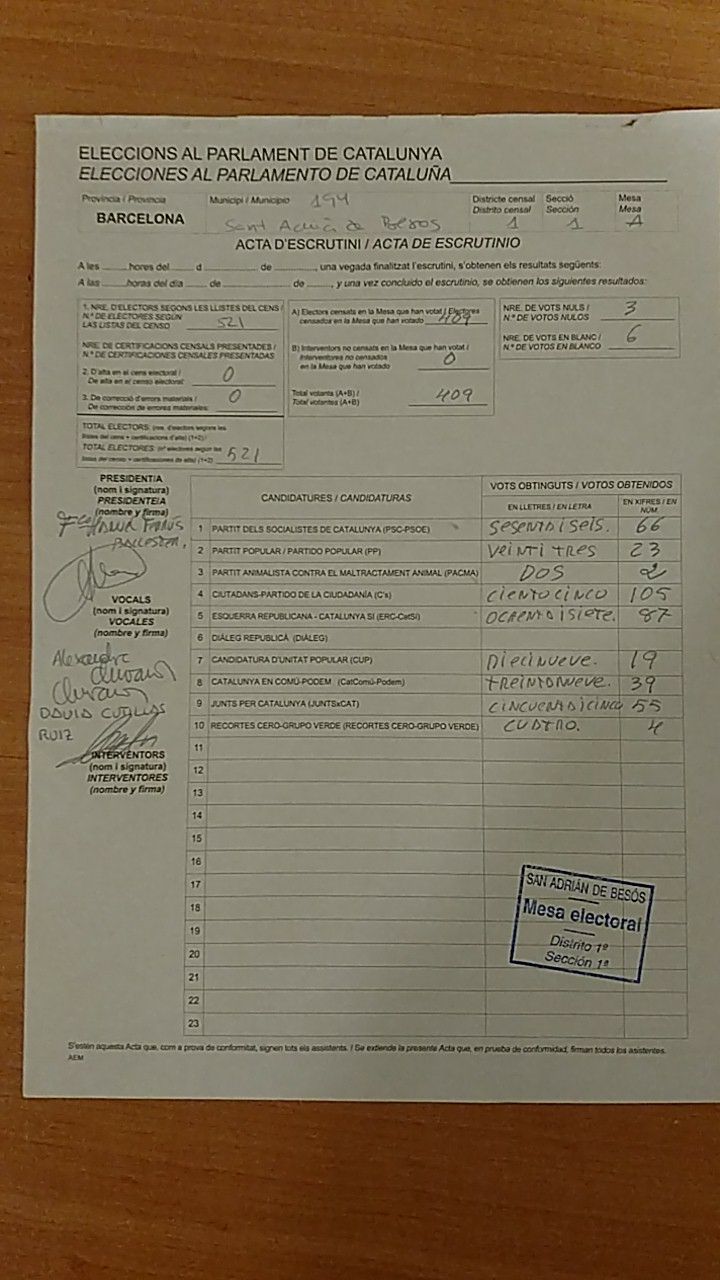 ELECCIONS AL PARLAMENT DE CATALUNYA
ELECCIONES AL PARLAMENTO DE CATALUÑA
Província / Provincia
BARCELONA
Municipi / Municipio 194
Sant Adrià de Besos
Districte censal
Distrito censal
1
Secció
Sección
1
Mesa
Mesa
A
ACTA D'ESCRUTINI / ACTA DE ESCRUTINIO
A les ......... hores del ......... d ......... de ........., una vegada finalitzat l'escrutini, s'obtenen els resultats següents:
A las ......... horas del día ......... de ......... de ........., y una vez concluido el escrutinio, se obtienen los siguientes resultados:
1. NRE. D'ELECTORS SEGONS LES LLISTES DEL CENS /
N.º DE ELECTORES SEGÚN
LAS LISTAS DEL CENSO 521
NRE. DE CERTIFICACIONS CENSALS PRESENTADES /
N.º DE CERTIFICACIONES CENSALES PRESENTADAS
2. D'alta en el cens electoral /
De alta en el censo electoral: 0
3. De correcció d'errors materials /
De corrección de errores materiales: 0
TOTAL ELECTORS: (nre. d'electors segons les
llistes del cens + certificacions d'alta) (1+2) /
TOTAL ELECTORES: (nº electores según las
listas del censo + certificaciones de alta) (1+2) 521
A) Electors censats en la Mesa que han votat / Electores
censados en la Mesa que han votado 409
B) Interventors no censats en la Mesa que han votat /
Interventores no censados
en la Mesa que han votado 0
Total votants (A+B) /
Total votantes (A+B) 409
NRE. DE VOTS NULS /
N.º DE VOTOS NULOS 3
NRE. DE VOTS EN BLANC /
N.º DE VOTOS EN BLANCO 6
PRESIDENT/A
(nom i signatura)
PRESIDENTE/A
(nombre y firma)
VOCALS
(nom i signatura)
VOCALES
(nombre y firma)
Alexandre
DAVID CUTILLAS
RUIZ
INTERVENTORS
(nom i signatura)
INTERVENTORES
(nombre y firma)
CANDIDATURES / CANDIDATURAS
VOTS OBTINGUTS / VOTOS OBTENIDOS
EN LLETRES / EN LETRA
EN XIFRES / EN NÚM.
1 PARTIT DELS SOCIALISTES DE CATALUNYA (PSC-PSOE) sesentaiseis. 66
2 PARTIT POPULAR / PARTIDO POPULAR (PP) veintitres 23
3 PARTIT ANIMALISTA CONTRA EL MALTRACTAMENT ANIMAL (PACMA) DOS 2
4 CIUTADANS-PARTIDO DE LA CIUDADANÍA (C's) cientocinco 105
5 ESQUERRA REPUBLICANA - CATALUNYA SÍ (ERC-CatSí) ochentaisiete. 87
6 DIÀLEG REPUBLICÀ (DIÀLEG)
7 CANDIDATURA D'UNITAT POPULAR (CUP) Diecinueve. 19
8 CATALUNYA EN COMÚ-PODEM (CatComú-Podem) treintanueve. 39
9 JUNTS PER CATALUNYA (JUNTSxCAT) cincuentaicinco 55
10 RECORTES CERO-GRUPO VERDE (RECORTES CERO-GRUPO VERDE) cuatro. 4
11
12
13
14
15
16
17
18
19
20
21
22
23
SAN ADRIÁN DE BESÓS
Mesa electoral
Distrito 1º
Sección 1ª
S'estén aquesta Acta que, com a prova de conformitat, signen tots els assistents. / Se extiende la presente Acta que, en prueba de conformidad, firman todos los asistentes.
AEM